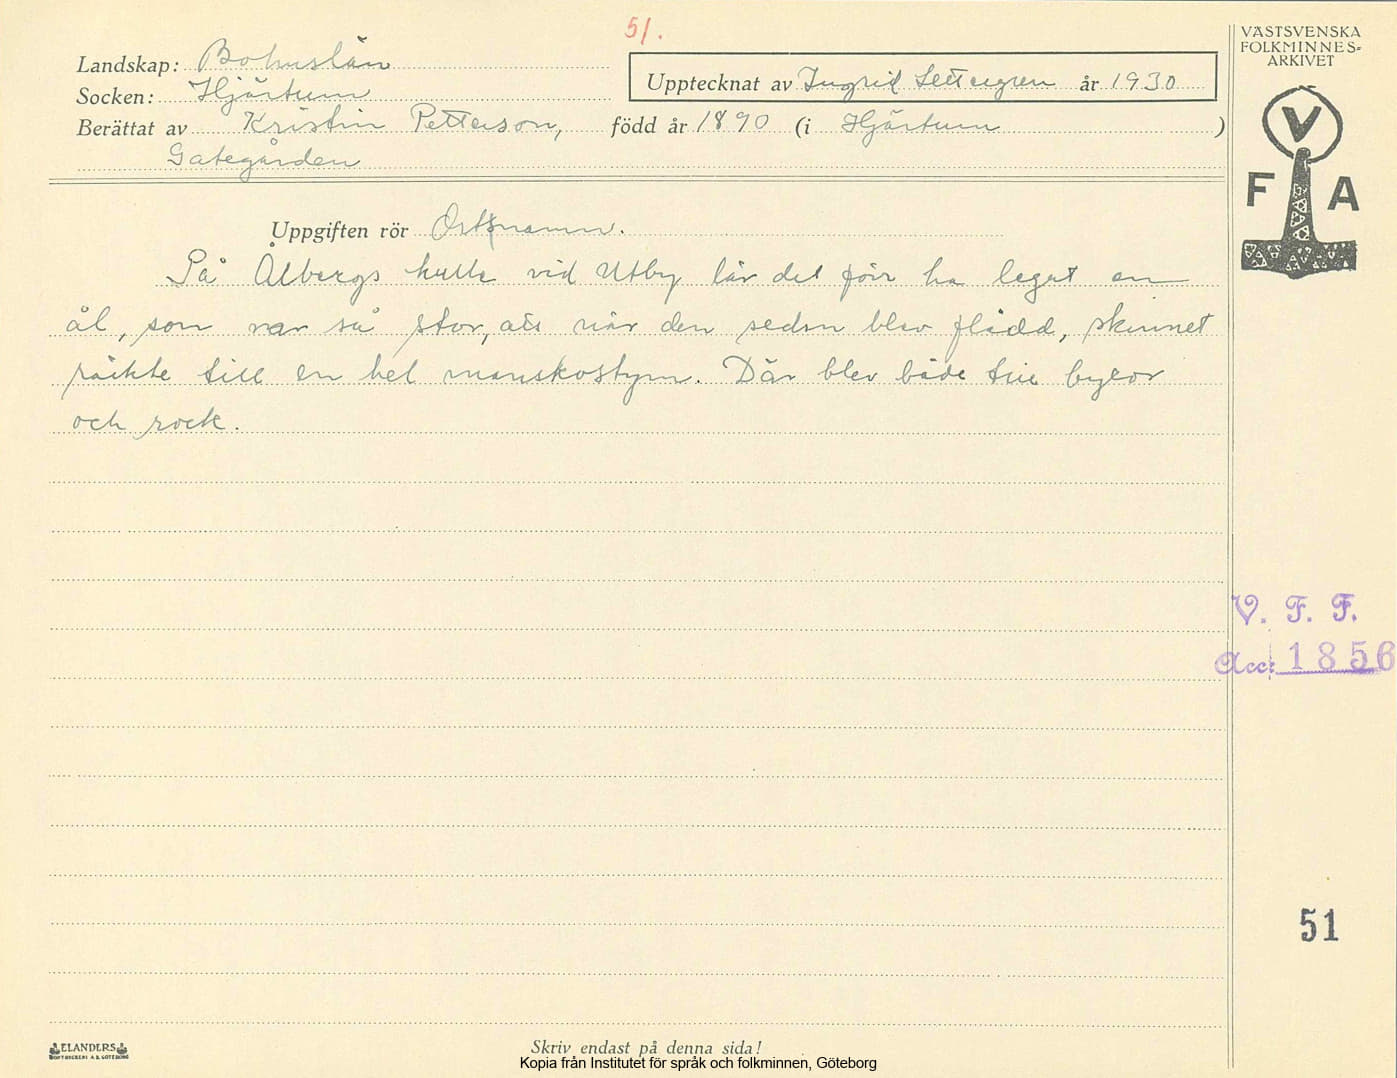 51.
Landskap: Bohuslän
Upptecknat av Ingrid Settergren år 1930
Socken: Hjärtum
Berättat av Kristin Petterson, född år 1890 (i Hjärtum )
Gategården
Uppgiften rör Ortsnamn.
På Ålbergs hulle vid Utby lär det förr ha legat en
ål, som var så stor, att när den sedan blev flådd, skinnet
räckte till en hel manskostym. Där blev både till byxor
och rock.
VÄSTSVENSKA
FOLKMINNES-
ARKIVET
V
F A
V. F. F.
Acc: 1856
51
ELANDERS
BOKTRYCKERI A.B. GÖTEBORG
Skriv endast på denna sida!
Kopia från Institutet för språk och folkminnen, Göteborg